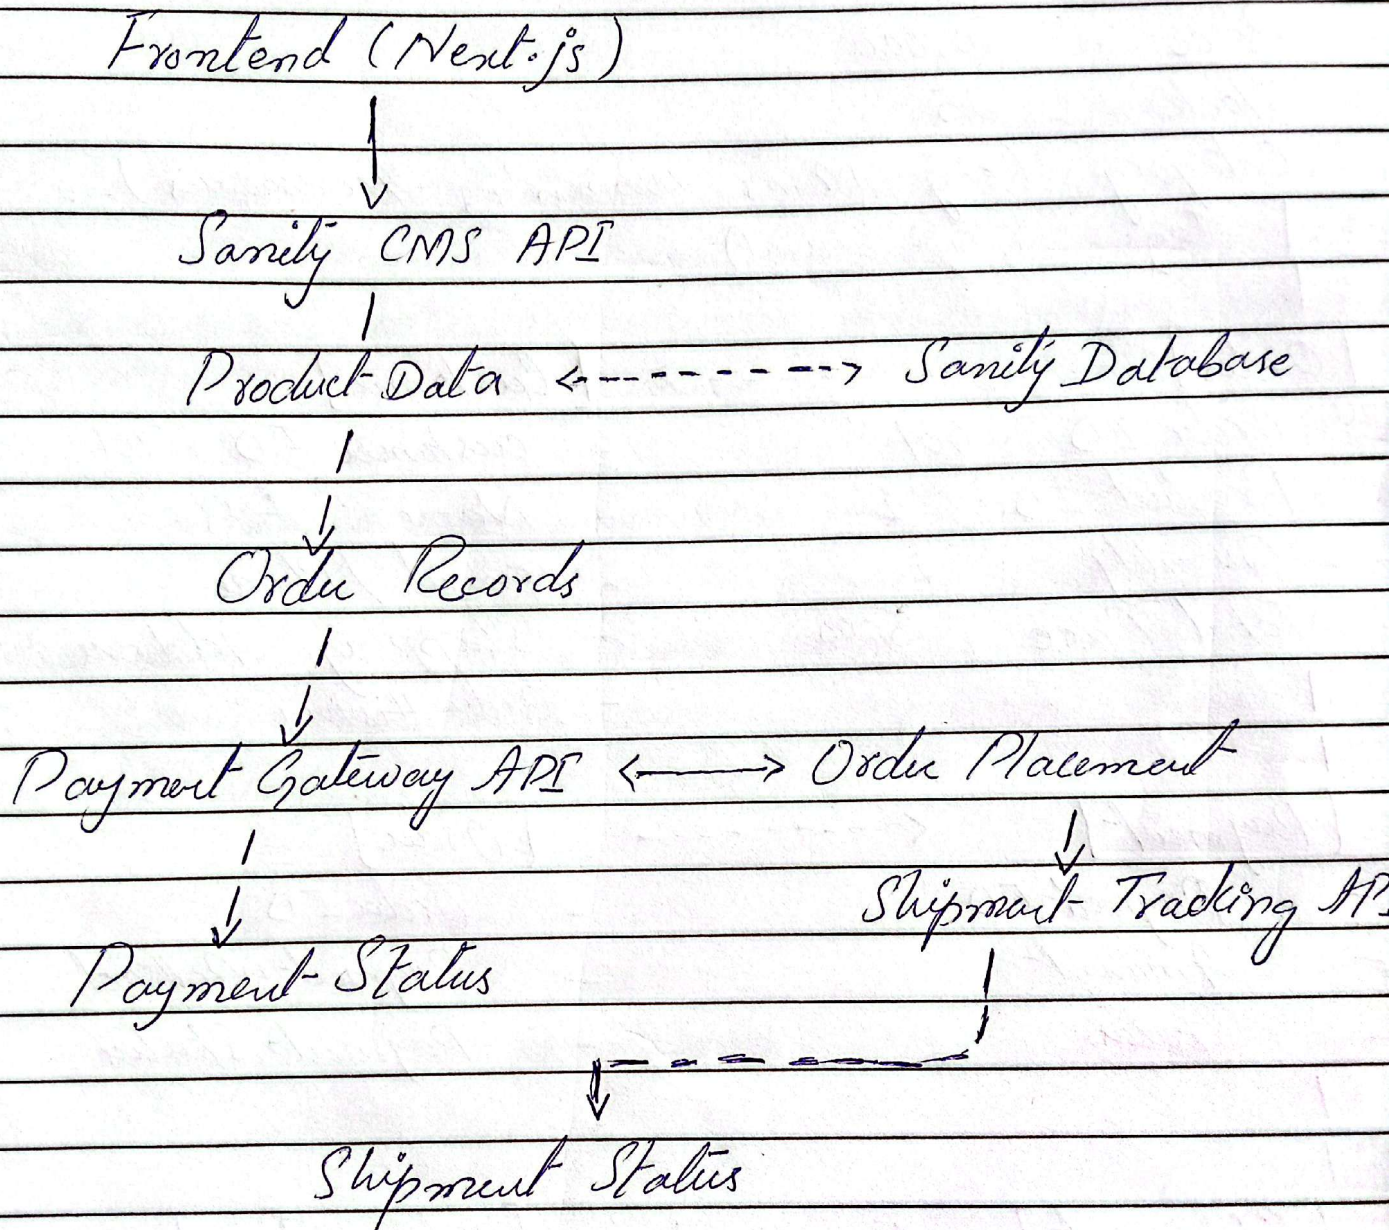 Frontend (Next.js)
Sanity CMS API
Product Data <--------> Sanity Database
Order Records
Payment Gateway API <——> Order Placement
Shipment Tracking API
Payment Status
Shipment Status